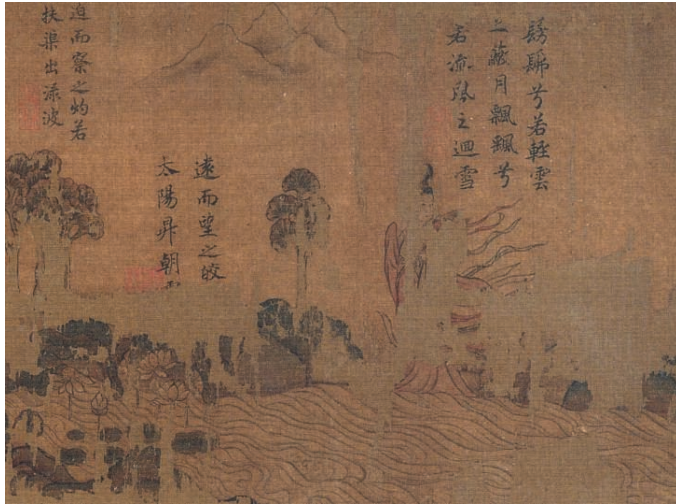 髣髴兮若輕雲
之蔽月飄飄兮
若流風之迴雪
遠而望之皎
太陽昇朝
迫而察之灼若
扶渠出淥波